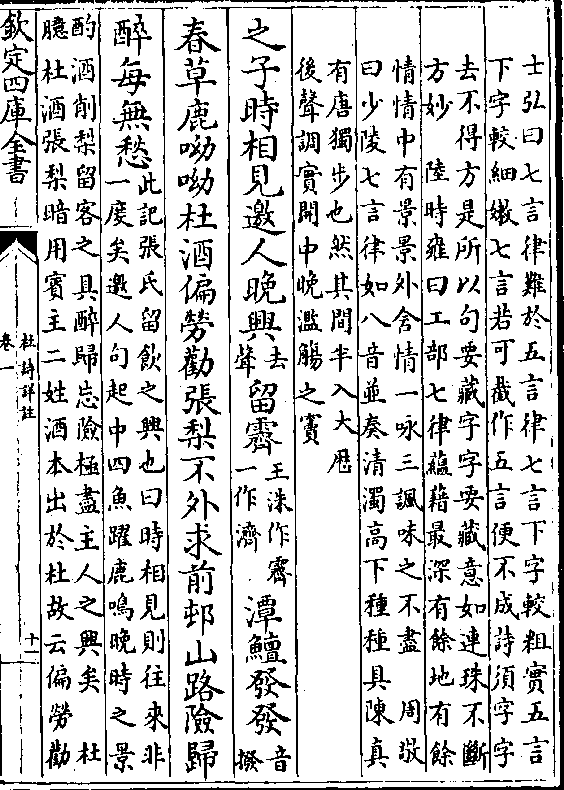 士弘曰七言律難於五言律七言下字較粗實五言
下字較細嫩七言若可截作五言便不成詩須字字
去不得方是所以句要藏字字要藏意如連珠不斷
方妙　陸時雍曰工部七律蘊藉最深有餘地有餘
情情中有景景外含情一咏三諷味之不盡　周敬
曰少陵七言律如八音並奏清濁高下種種具陳真
有唐獨步也然其間半入大歴
後聲調實開中晚濫觴之竇
之子時相見邀人晚興去聲留霽王洙作霽一作濟潭鱣發發音撥
春草鹿呦呦杜酒偏勞勸張梨不外求前邨山路險歸
醉每無愁此記張氏留飲之興也曰時相見則往來非
一度矣邀人句起中四魚躍鹿鳴晚時之景
酌酒削梨留客之具醉歸忘險極盡主人之興矣　杜
臆杜酒張梨暗用賓主二姓酒本出於杜故云偏勞勸
欽定四庫全書
杜詩詳註
卷一
十一